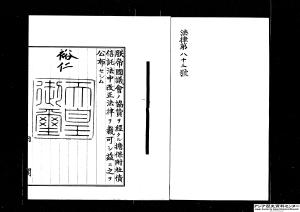 法律第八十三號
朕帝國議會ノ協賛ヲ經タル擔保附社債
信託法中改正法律ヲ裁可シ茲ニ之ヲ
公布セシム
裕仁
天皇
御璽
アジア歴史資料センター